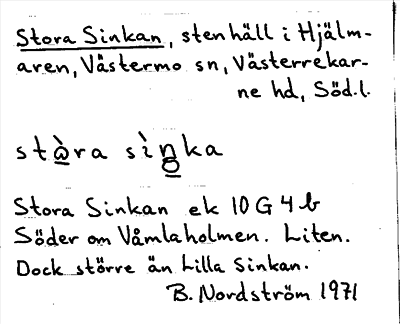 Stora Sinkan, stenhäll i Hjälm-
aren, Västermo sn, Västerrekar-
ne hd, Söd.l.
stɷ̀ra sìŋka
Stora Sinkan ek 10 G 4 b
Söder om Våmlaholmen. Liten.
Dock större än Lilla Sinkan.
B. Nordström 1971